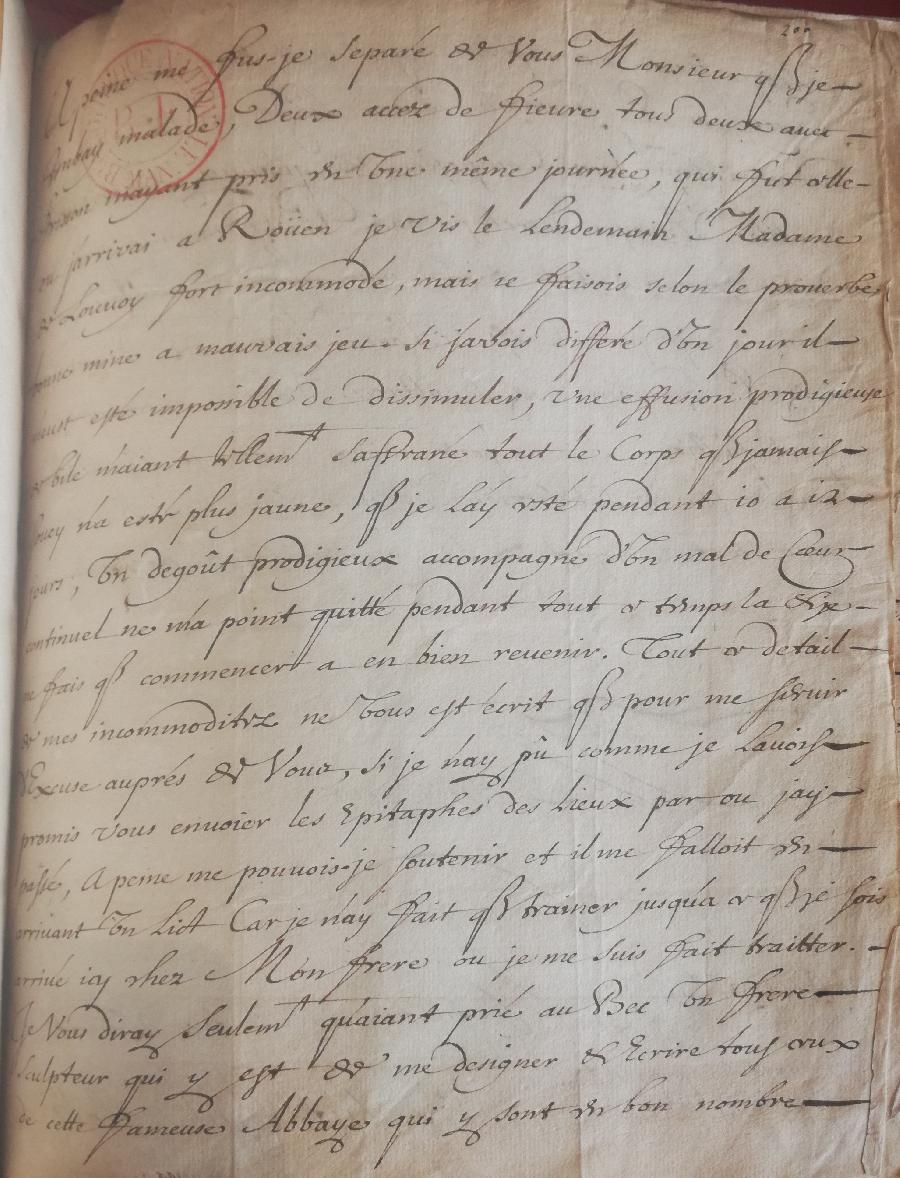 200
A peine me fus-je separé de Vous Monsieur qß je
tombay malade, Deux accez de fieure tous deux auec
frisson mayant pris en Vne même journée, qui fut celle
ou jarrivai a Roüen je vis le Lendemain Madame
de Louuoy fort incommodé, mais ie faisois selon le prouerbe
bonne mine a mauvais jeu. si j'avois differé d'Vn jour il
must esté impossible de dissimuler, vne effusion prodigieuse
de bile m'aiant tellemt saffrané tout le Corps qß jamais
n'a esté plus jaune, qß je Láy esté pendant 10 a 12
jours, Vn degoût prodigieux accompagné d'Vn mal de Cœur
continuel ne m'a point quitté pendant tout ce temps la & je
ne fais qß commencer a en bien reuenir. Tout ce detail
de mes incommoditez ne Vous est écrit qß pour me seruir
d'Excuse auprés de Vous, si je n'ay pû comme je Lauois
promis vous envoier les Epitaphes des Lieux par ou jay
passé, A peine me pouvois-je soutenir et il me falloit en
arriuant Vn Lict Car je n'ay fait qß trainer jusqu'a ce qß je sois
arriué icy chez Mon frere ou je me suis fait traitter.
Je Vous diray seulemt qu'aiant prié au Bec Vn frere
sculpteur qui y est de me designer & Ecrire tous ceux
de cette fameuse Abbaye qui y sont en bon nombre